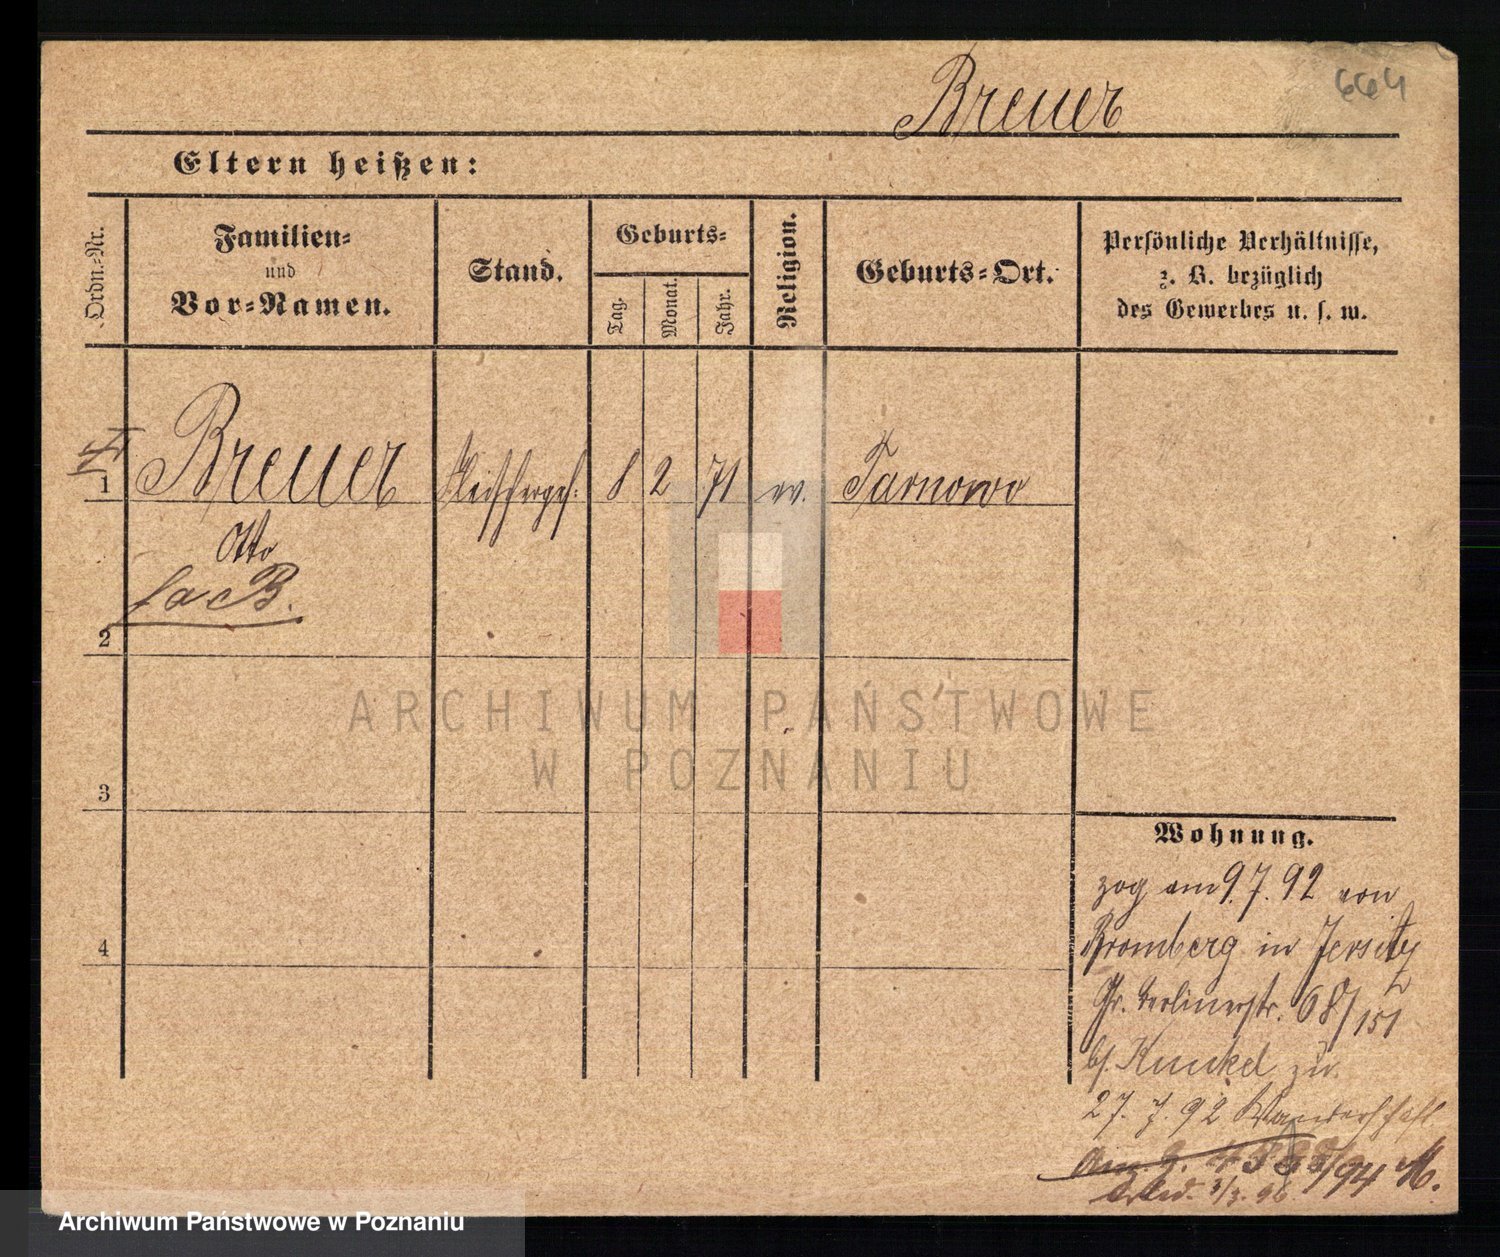 Breuer
664
Eltern heißen:
Ordn.-Nr.
Familien-
und
Vor-Namen.
Stand.
Geburts-
Tag.
Monat.
Jahr.
Religion.
Geburts-Ort.
Persönliche Verhältnisse,
z. B. bezüglich
des Gewerbes u. s. w.
1 Breuer Fleischerges. 8 2 71 ev. Tarnowo
Otto
2
3
4
ARCHIWUM PAŃSTWOWE
W POZNANIU
Wohnung.
zog am 9.7.92 von
Bromberg in Jersitz
Gr. Berlinerstr. 68/151
bs. Kunkel zu
27. 7. 92 Wanderschaft
/94 M.
3/3. 96
Archiwum Państwowe w Poznaniu